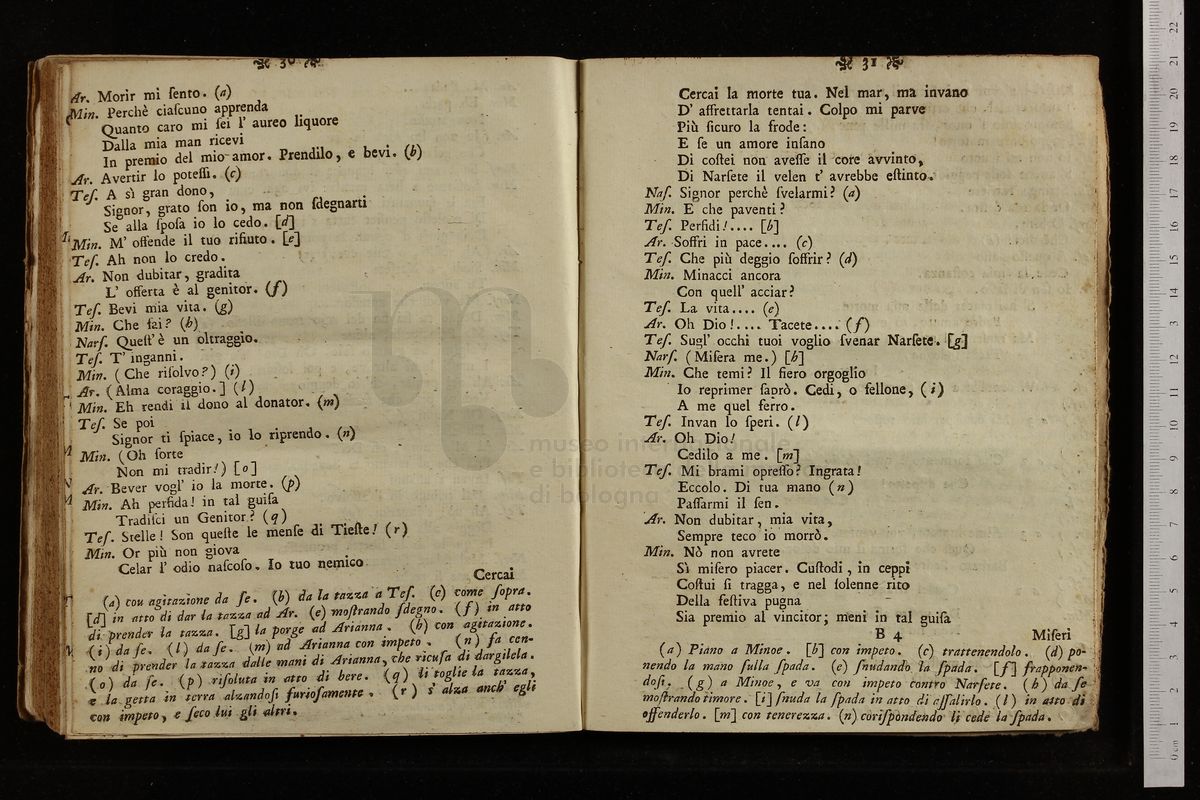 30
Ar. Morir mi ſento. (a)
Min. Perchè ciaſcuno apprenda
Quanto caro mi ſei l' aureo liquore
Dalla mia man ricevi
In premio del mio amor. Prendilo, e bevi. (b)
Ar. Avertir lo poteſſi. (c)
Teſ. A sì gran dono,
Signor, grato ſon io, ma non ſdegnarti
Se alla ſpoſa io lo cedo. [d]
Min. M' offende il tuo rifiuto. [e]
Teſ. Ah non lo credo.
Ar. Non dubitar, gradita
L' offerta è al genitor. (f)
Teſ. Bevi mia vita. (g)
Min. Che fai? (h)
Narſ. Queſt' è un oltraggio.
Teſ. T' inganni.
Min. (Che riſolvo?) (i)
Ar. (Alma coraggio.] (l)
Min. Eh rendi il dono al donator. (m)
Teſ. Se poi
Signor ti ſpiace, io lo riprendo. (n)
Min. (Oh ſorte
Non mi tradir!) [o]
Ar. Bever vogl' io la morte. (p)
Min. Ah perfida! in tal guiſa
Tradiſci un Genitor? (q)
Teſ. Stelle! Son queſte le menſe di Tieſte! (r)
Min. Or più non giova
Celar l' odio naſcoſo. Io tuo nemico
Cercai
(a) con agitazione da ſe. (b) da la tazza a Teſ. (c) come ſopra.
[d] in atto di dar la tazza ad Ar. (e) moſtrando ſdegno. (f) in atto
di prender la tazza. [g] la porge ad Arianna. (h) con agitazione.
(i) da ſe. (l) da ſe. (m) ad Arianna con impeto. (n) fa cen-
no di prender la tazza dalle mani di Arianna, che ricuſa di dargilela.
(o) da ſe. (p) riſoluta in atto di bere. (q) li toglie la tazza,
e la getta in terra alzandoſi furioſamente. (r) s' alza anch' egli
con impeto, e ſeco lui gli altri.
31
Cercai la morte tua. Nel mar, ma invano
D' affrettarla tentai. Colpo mi parve
Più ſicuro la frode:
E ſe un amore inſano
Di coſtei non aveſſe il core avvinto,
Di Narſete il velen t' avrebbe eſtinto.
Naſ. Signor perchè ſvelarmi? (a)
Min. E che paventi?
Teſ. Perfidi!.... [b]
Ar. Soffri in pace.... (c)
Teſ. Che più deggio ſoffrir? (d)
Min. Minacci ancora
Con quell' acciar?
Teſ. La vita.... (e)
Ar. Oh Dio!.... Tacete.... (f)
Teſ. Sugl' occhi tuoi voglio ſvenar Narſete. [g]
Narſ. (Miſera me.) [h]
Min. Che temi? Il fiero orgoglio
Io reprimer ſaprò. Cedi, o fellone, (i)
A me quel ferro.
Teſ. Invan lo ſperi. (l)
Ar. Oh Dio!
Cedilo a me. [m]
Teſ. Mi brami opreſſo? Ingrata!
Eccolo. Di tua mano (n)
Paſſarmi il ſen.
Ar. Non dubitar, mia vita,
Sempre teco io morrò.
Min. Nò non avrete
Sì miſero piacer. Cuſtodi, in ceppi
Coſtui ſi tragga, e nel ſolenne rito
Della feſtiva pugna
Sia premio al vincitor; meni in tal guiſa
B 4
Miſeri
(a) Piano a Minoe. [b] con impeto. (c) trattenendolo. (d) po-
nendo la mano ſulla ſpada. (e) ſnudando la ſpada. [f] frapponen-
doſi. (g) a Minoe, e va con impeto contro Narſete. (h) da ſe
moſtrando timore. [i] ſnuda la ſpada in atto di aſſalirlo. (l) in atto di
offenderlo. [m] con tenerezza. (n) coriſpondendo li cede la ſpada.